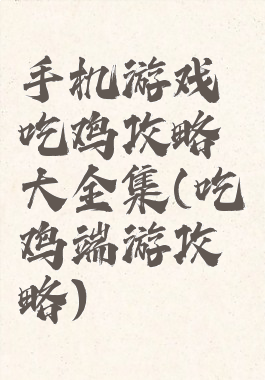 手机游戏
吃鸡攻略
大全集(吃
鸡端游攻
略)